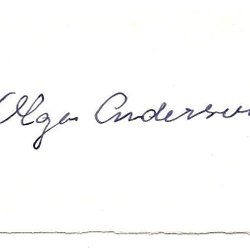 Olga Anderson